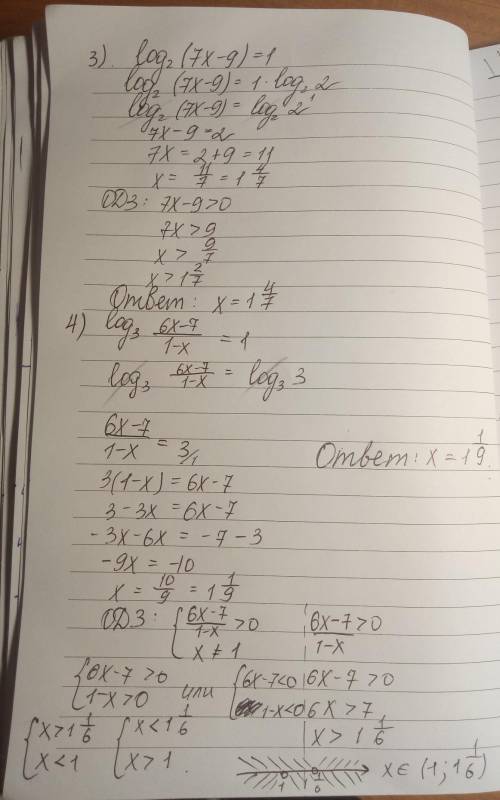 3) log₂ (7x-9) = 1
log₂ (7x-9) = 1 · log₂ 2
log₂ (7x-9) = log₂ 2¹
7x-9 = 2
7x = 2+9 = 11
x = 11/7 = 1 4/7
ОДЗ: 7x-9>0
7x > 9
x > 9/7
x > 1 2/7
Ответ: x = 1 4/7
4) log₃ (6x-7)/(1-x) = 1
log₃ (6x-7)/(1-x) = log₃ 3
(6x-7)/(1-x) = 3/1
Ответ: x = 1 1/9.
3(1-x) = 6x-7
3-3x = 6x-7
-3x-6x = -7-3
-9x = -10
x = 10/9 = 1 1/9
ОДЗ: { (6x-7)/(1-x) > 0 (6x-7>0)/(1-x)
x ≠ 1
{ 6x-7 > 0 или { 6x-7<0 6x-7 > 0
1-x>0 1-x<0 6x > 7
{ x > 1 1/6 { x < 1 1/6 x > 1 1/6
x < 1 x > 1 . 1 1 1/6 x ∈ (1; 1 1/6)